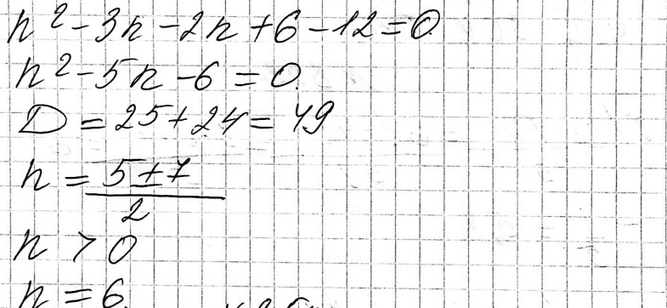 n² - 3n - 2n + 6 - 12 = 0
n² - 5n - 6 = 0
D = 25 + 24 = 49
n = (5 ± 7) / 2
n > 0
n = 6